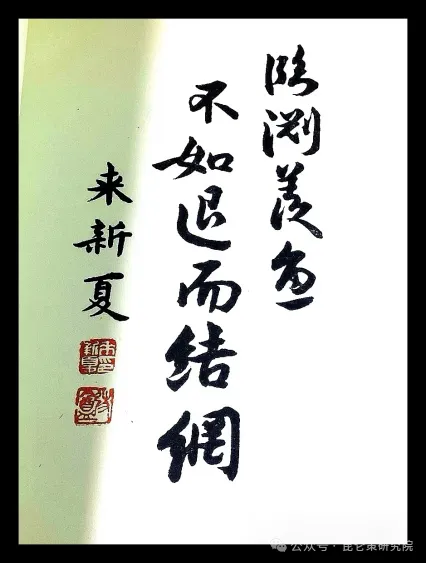 臨渊羡魚
不如退而结網
来新夏
公众号·昆仑策研究院